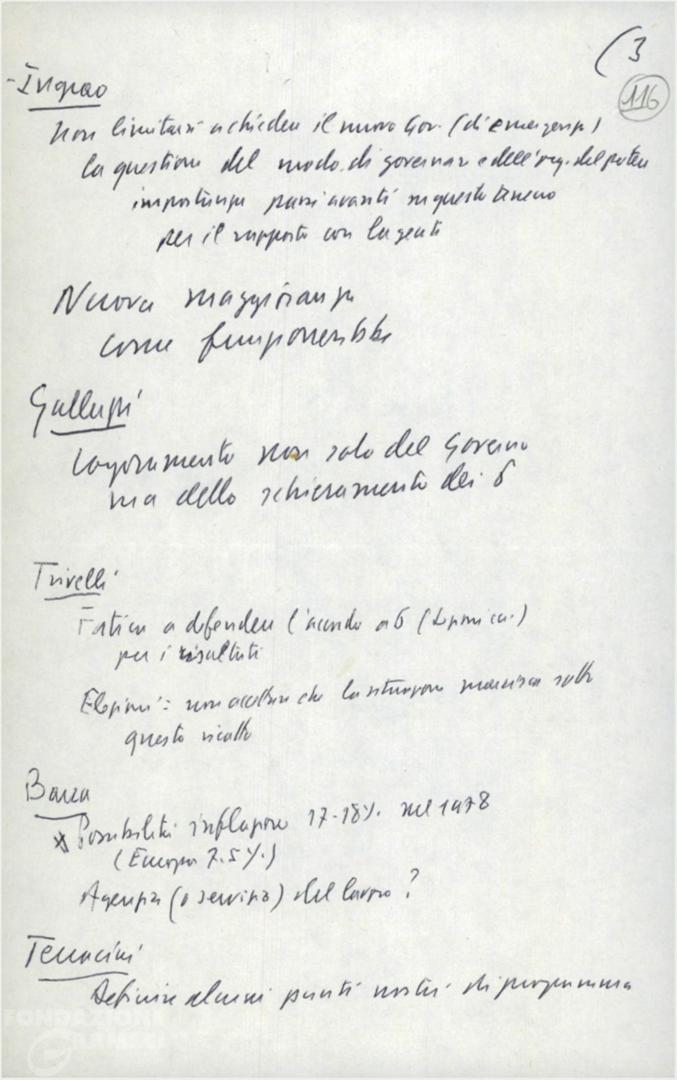 (3
116
- Ingrao
Non limitarsi a chiedere il nuovo Gov. (di emergenza)
la questione del modo di governare e dell'org. del potere
importanza passi avanti su questo terreno
per il rapporto con la gente
Nuova maggioranza
come funzionerebbe
Galluzzi
Logoramento non solo del Governo
ma dello schieramento dei 6
Trivelli
Fatica a defendere l'accordo a 6
per i risultati
Elezioni: non accettare che la situazione marcisca sotto
questo ricatto
Barca
x Possibilità inflazione 17-18%. nel 1978
(Europa 7.5%.)
Agenzia (o servizio) del lavoro?
Terracini
Definire alcuni punti nostri di programma
FONDAZIONE
GRAMSCI